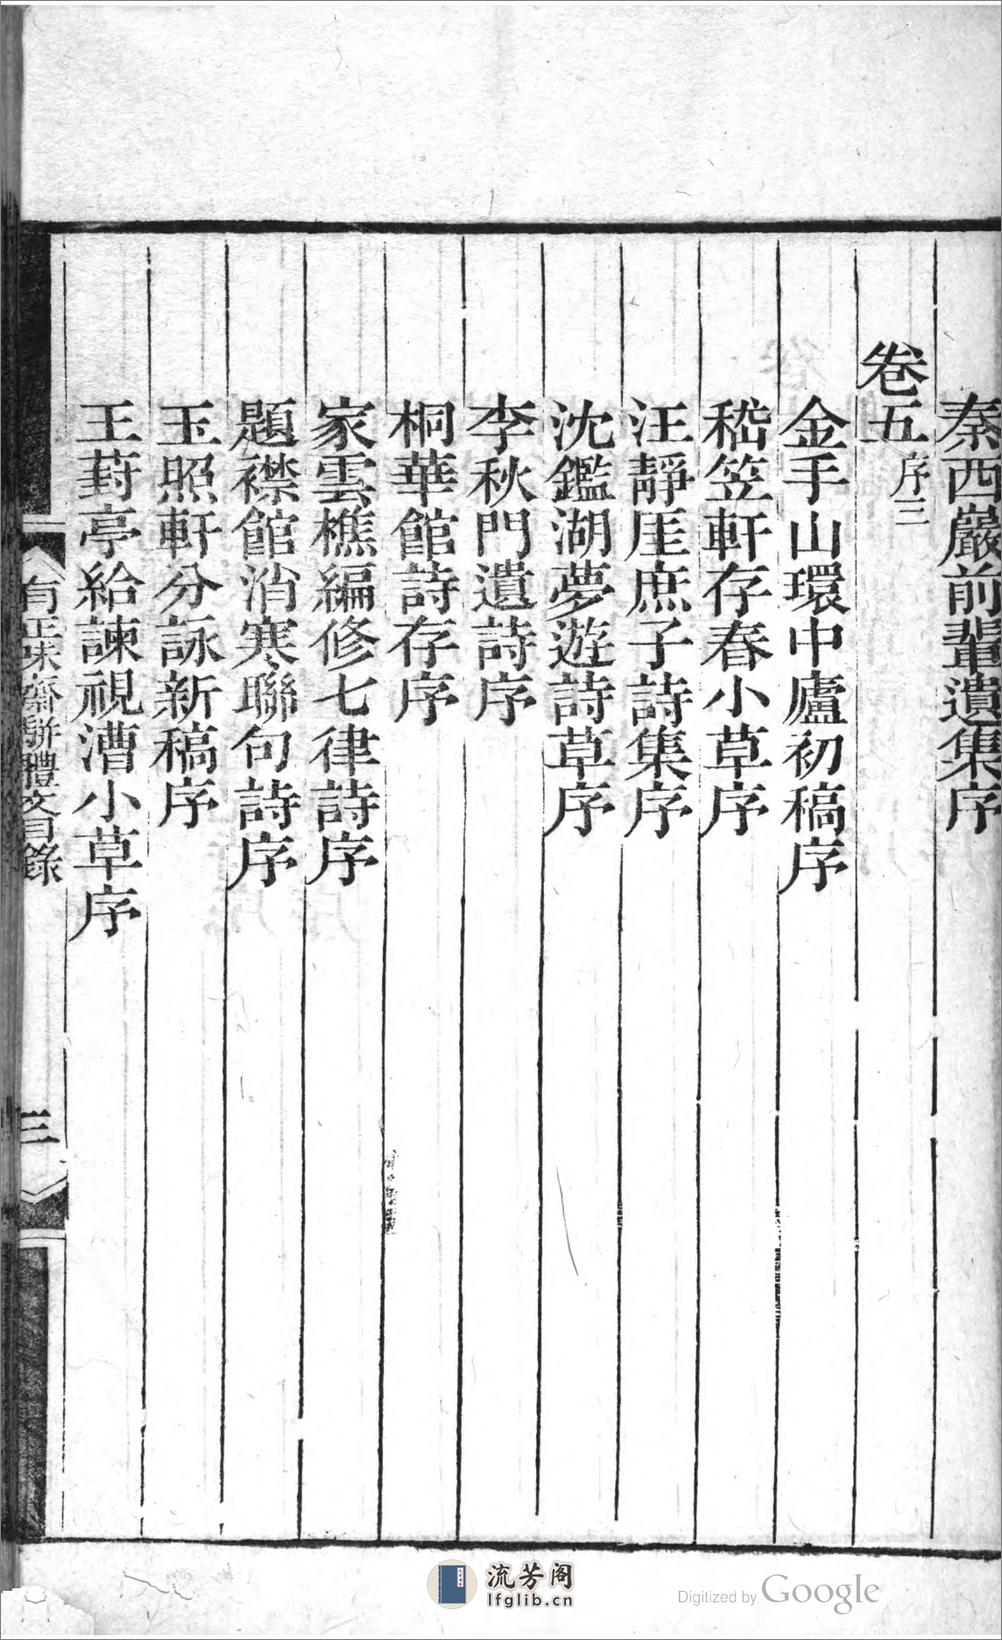 秦西巖前輩遺集序
卷五 序三
金手山環中廬初稿序
嵇笠軒存春小草序
汪靜厓庶子詩集序
沈鑑湖夢遊詩草序
李秋門遺詩序
桐華館詩存序
家雲樵編修七律詩序
題襟館消寒聯句詩序
玉照軒分詠新稿序
王葑亭給諫視漕小草序
有正味齋駢體文目錄
三
流芳阁
lfglib.cn
Digitized by Google